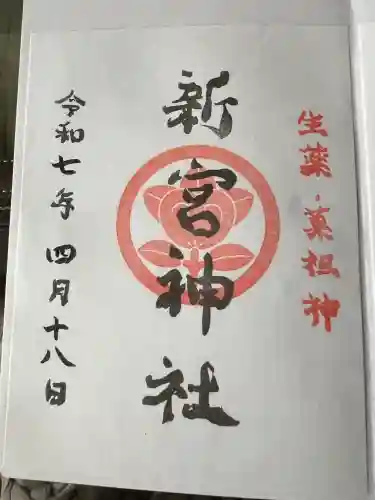 生薬・菓祖神
新宮神社
令和七年四月十八日